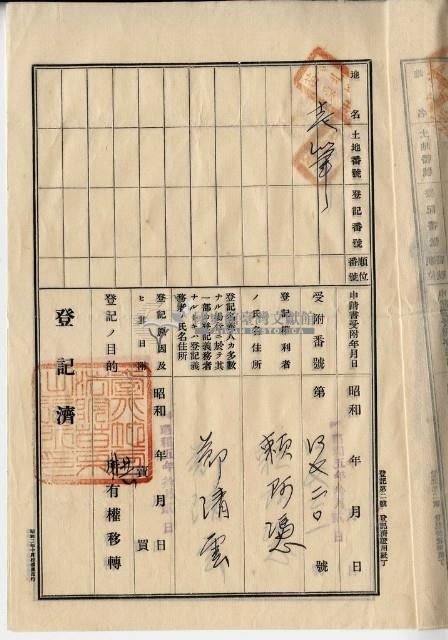 地名
土地番號
登記番號
順位番號
壱筆
申請書受附年月日
昭和 年 月 日
受附番號
第 號
登記權利者
ノ氏名住所
賴阿憑
登記名義人カ多數
ナル場合ニ於テ其
一部カ登記義務者
ナルトキハ登記義
務者ノ氏名住所
鄭清雲
登記原因及
ヒ其日附
昭和 年 月 日
賣買
登記ノ目的
所有權移轉
登記濟
登記第二號 登記濟證用紙丁
臺灣文獻館